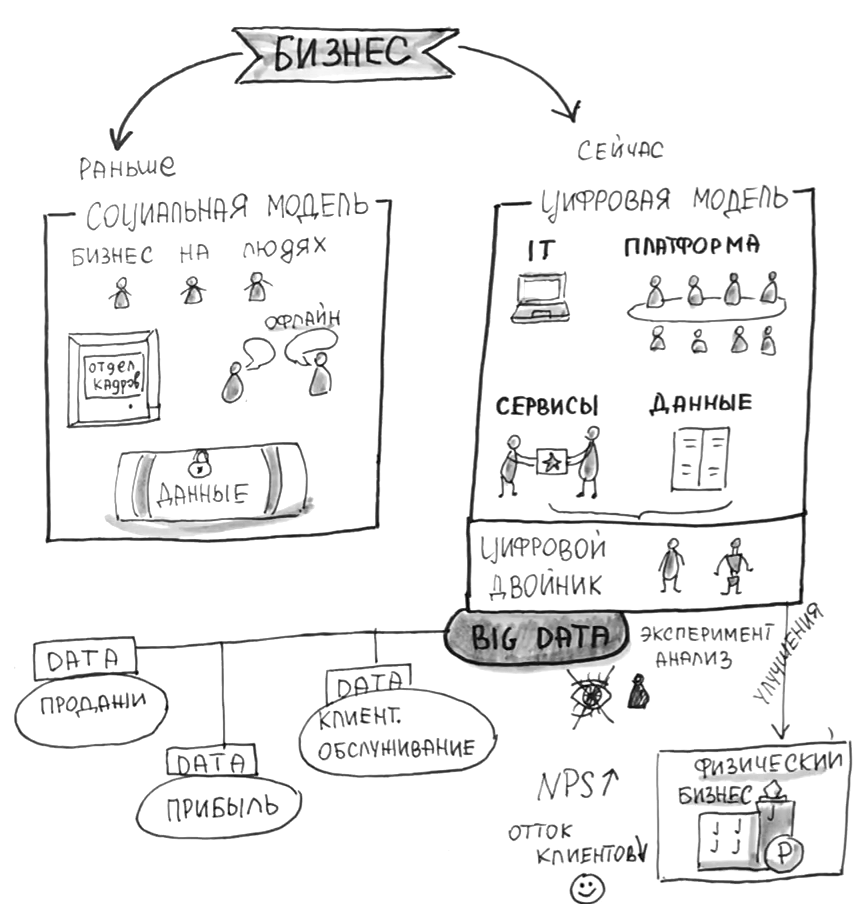 БИЗНЕС
РАНЬШЕ
СОЦИАЛЬНАЯ МОДЕЛЬ
БИЗНЕС НА ЛЮДЯХ
ОФЛАЙН
ОТДЕЛ
КАДРОВ
ДАННЫЕ
СЕЙЧАС
ЦИФРОВАЯ МОДЕЛЬ
IT
ПЛАТФОРМА
СЕРВИСЫ
ДАННЫЕ
ЦИФРОВОЙ
ДВОЙНИК
BIG DATA
ЭКСПЕРИМЕНТ
АНАЛИЗ
УЛУЧШЕНИЯ
DATA
ПРОДАЖИ
DATA
ПРИБЫЛЬ
DATA
КЛИЕНТ.
ОБСЛУЖИВАНИЕ
NPS↑
ОТТОК
КЛИЕНТОВ↓
ФИЗИЧЕСКИЙ
БИЗНЕС
Р